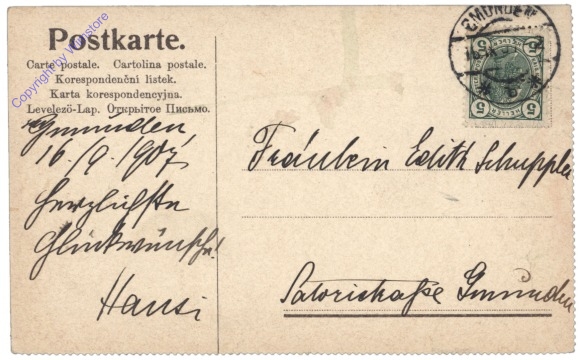 Postkarte.
Carte postale. Cartolina postale.
Korespondenční lístek.
Karta korespondencyjna.
Levelező-Lap. Открытое Письмо.
Copyright by Veststore
GMUNDEN
5 HELLER 5
Gmunden
16./9. 1907
Herzlichste
Glückwünsche!
Hansi
Fräulein Edith Schuppler
Satoristraße Gmunden